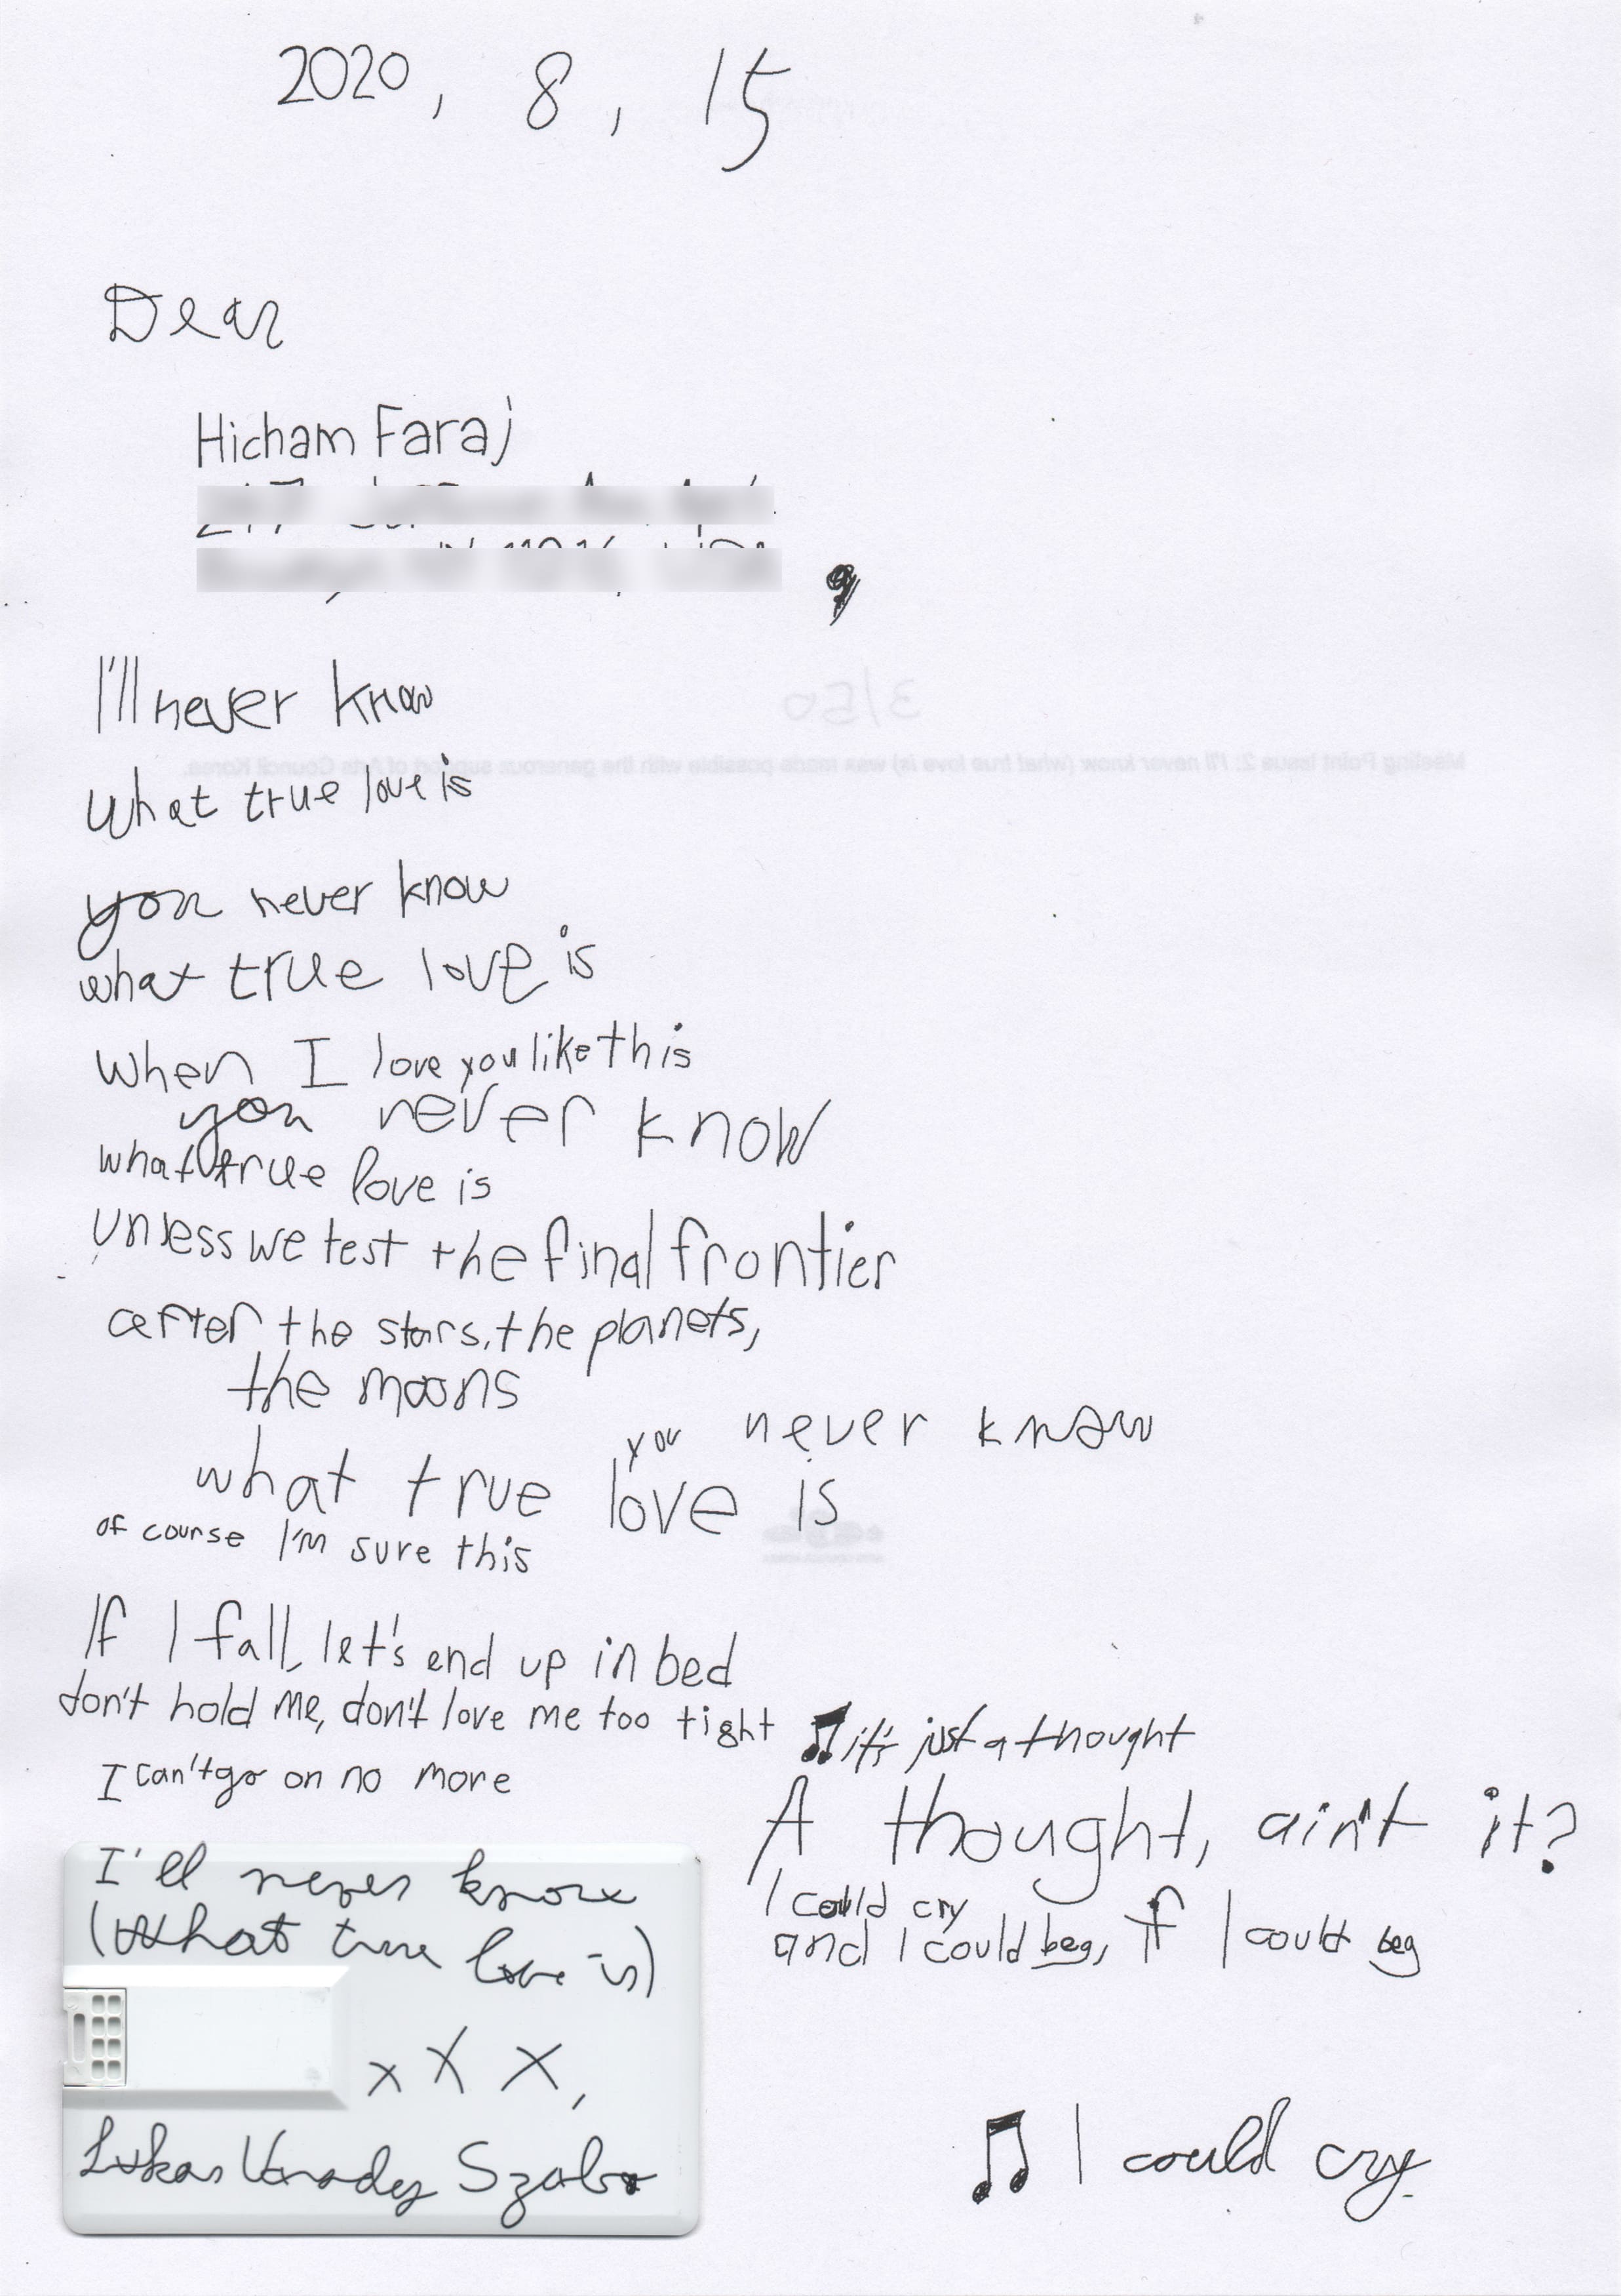 2020, 8, 15
Dear
Hicham Faraj
,
I'll never know
What true love is
you never know
what true love is
when I love you like this
you never know
what true love is
unless we test the final frontier
after the stars, the planets,
the moons
you never know
what true love is
of course I'm sure this
If I fall, let's end up in bed
don't hold me, don't love me too tight
♫ it's just a thought
I can't go on no more
A thought, ain't it?
I could cry
and I could beg, if I could beg
I'll never know
(What true love is)
x X X,
Lukas Varady Szabo
♫ I could cry.
3/50
Meeting Point Issue 2: I'll never know (what true love is) was made possible with the generous support of Arts Council Korea.